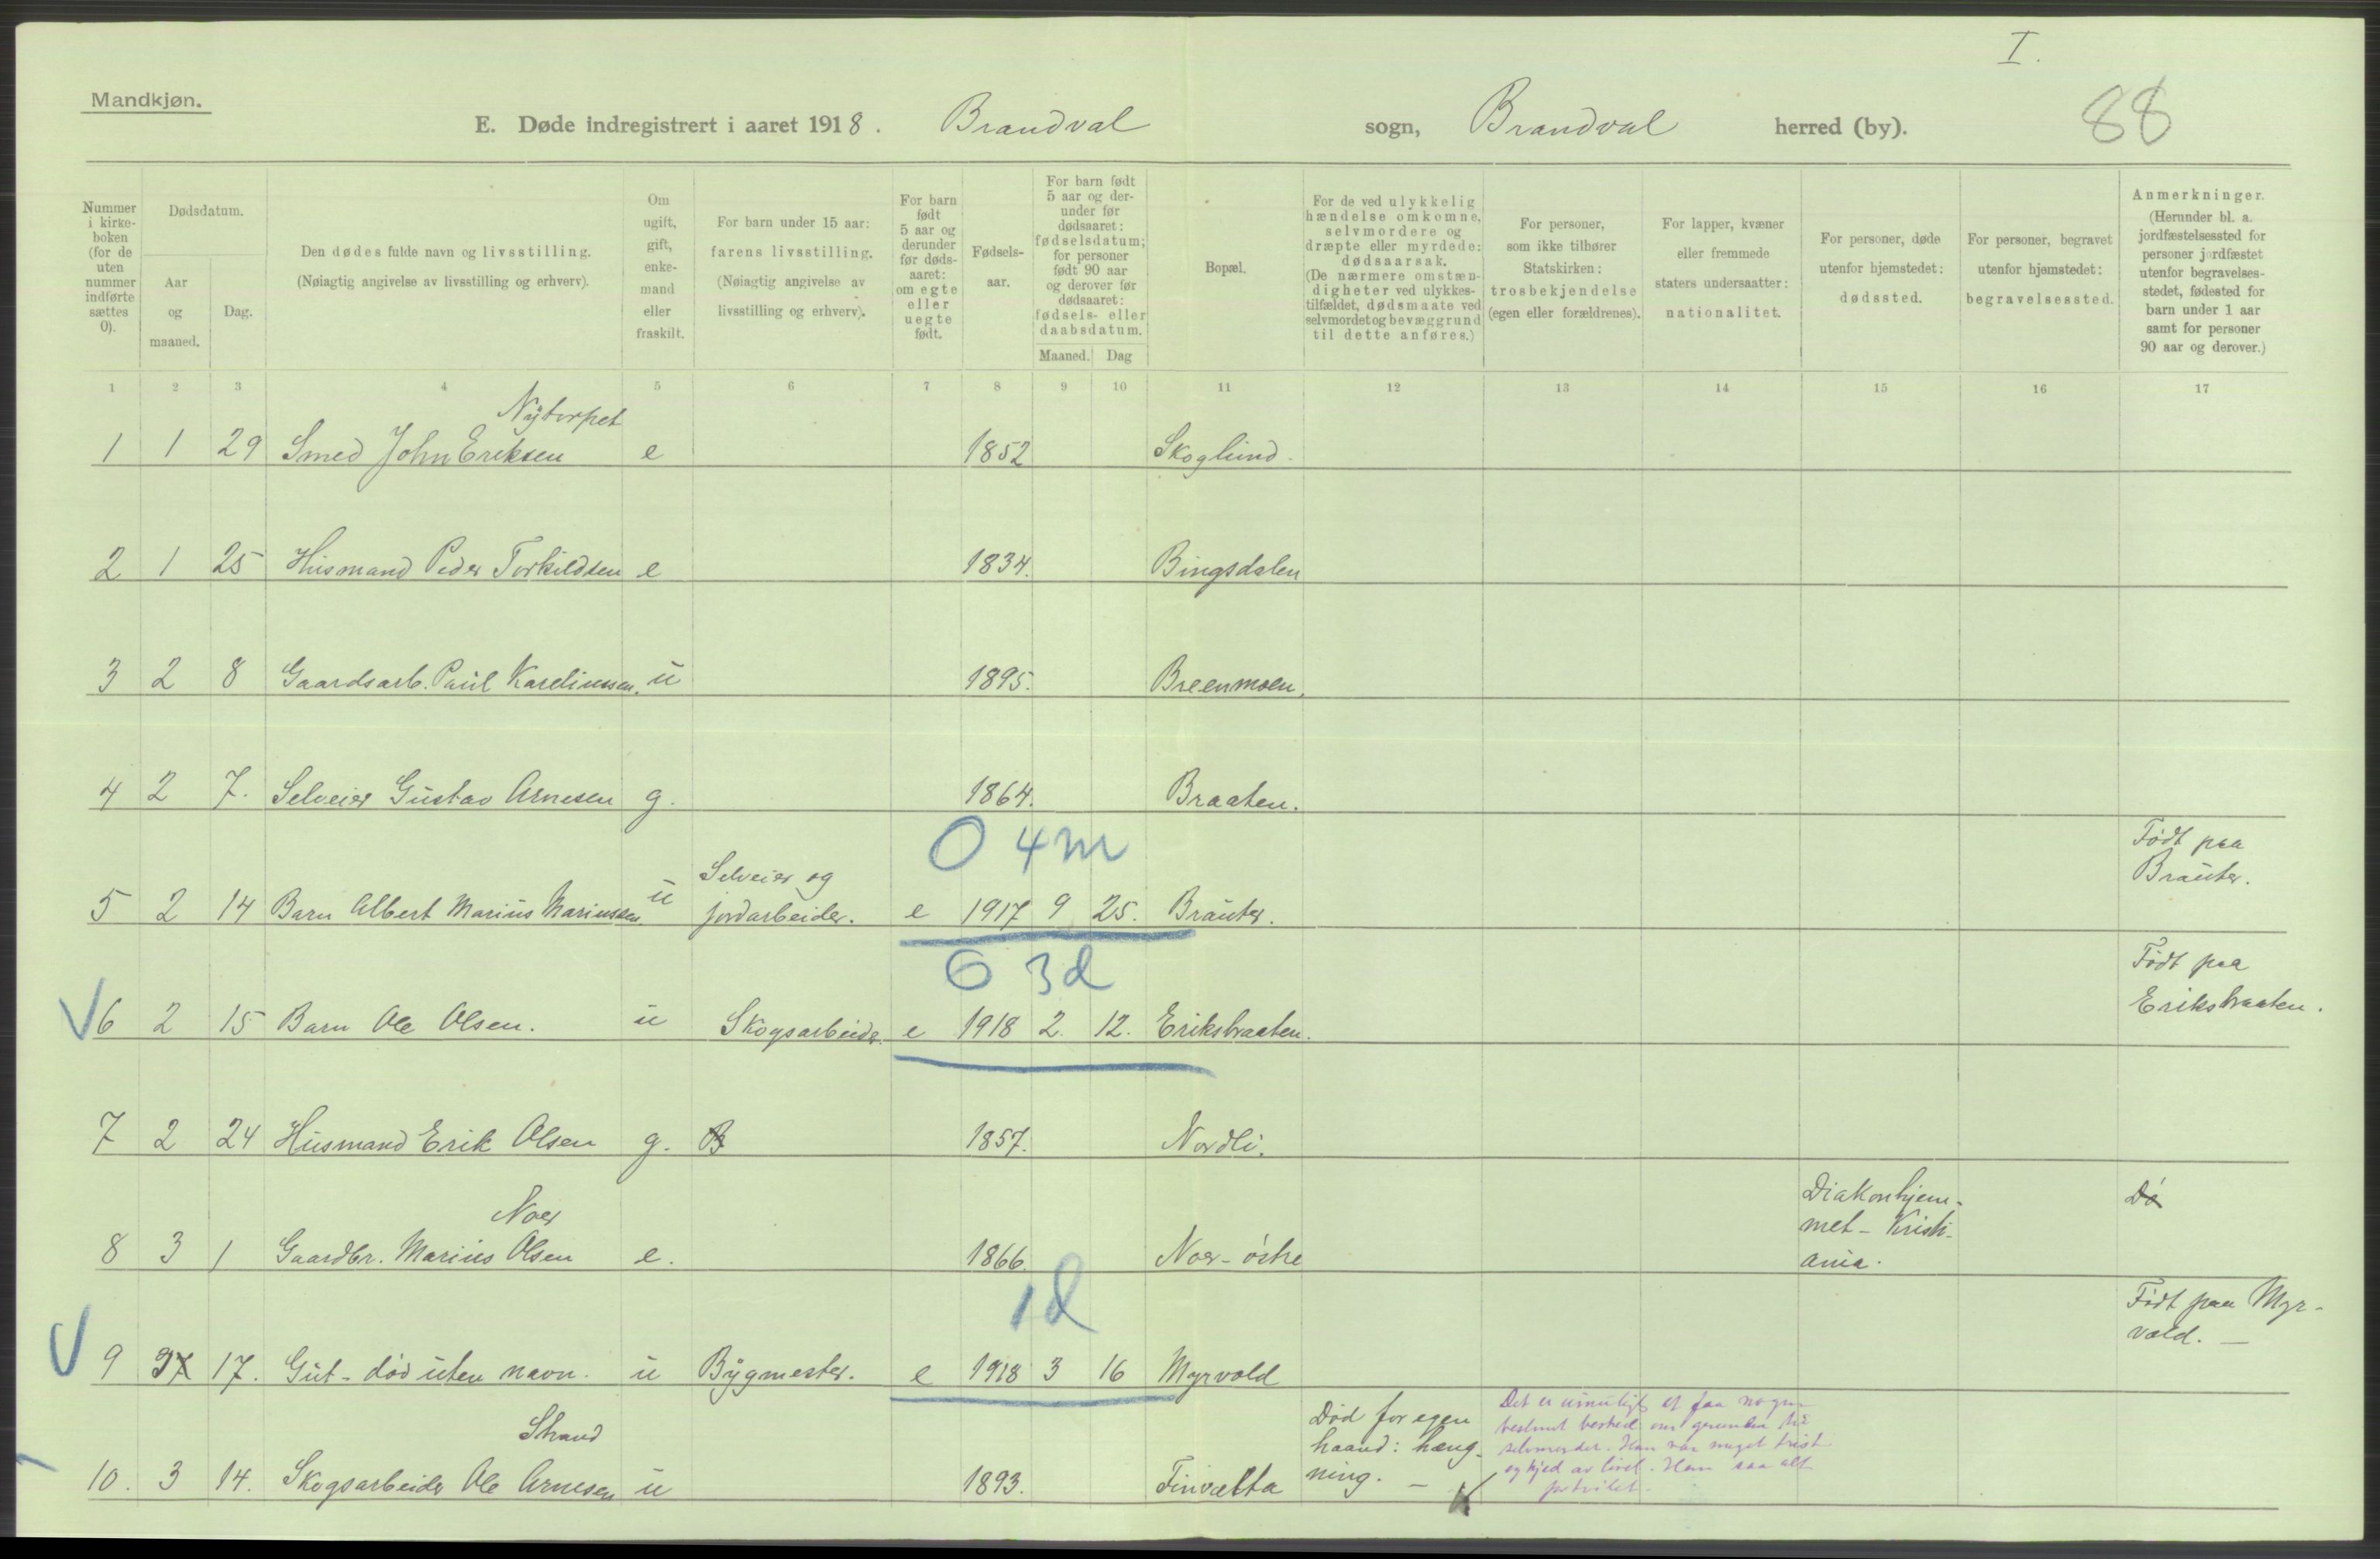 I.
Mandkjøn.
E. Døde indregistrert i aaret 1918. Brandval sogn, Brandval herred (by).
88
Nummer i kirke-boken (for de uten nummer indførte sættes 0).
Dødsdatum.
Aar og maaned.
Dag.
Den dødes fulde navn og livsstilling.
(Nøiagtig angivelse av livsstilling og erhverv).
Om ugift, gift, enke-mand eller fraskilt.
For barn under 15 aar: farens livsstilling.
(Nøiagtig angivelse av livsstilling og erhverv).
For barn født 5 aar og derunder før døds-aaret: om egte eller uegte født.
Fødsels-aar.
For barn født 5 aar og der-under før dødsaaret: fødselsdatum; for personer født 90 aar og derover før dødsaaret: fødsels- eller daabsdatum.
Maaned. Dag
Bopæl.
For de ved ulykkelig hændelse omkomne, selvmordere og dræpte eller myrdede: dødsaarsak.
(De nærmere omstæn-digheter ved ulykkes-tilfældet, dødsmaate ved selvmordet og bevæggrund til dette anføres.)
For personer, som ikke tilhører Statskirken: trosbekjendelse (egen eller forældrenes).
For lapper, kvæner eller fremmede staters undersaatter: nationalitet.
For personer, døde utenfor hjemstedet: dødssted.
For personer, begravet utenfor hjemstedet: begravelsessted.
Anmerkninger.
(Herunder bl. a. jordfæstelsessted for personer jordfæstet utenfor begravelses-stedet, fødested for barn under 1 aar samt for personer 90 aar og derover.)
1 2 3 4 5 6 7 8 9 10 11 12 13 14 15 16 17
Nytorpet
1 1 29 Smed John Eriksen e 1852 Skoglund.
2 1 25 Husmand Peder Torkildsen e 1834. Bingsdalen
3 2 8 Gaardsarb. Paul Kareliussen. u 1895. Breenmoen.
4 2 7. Selveier Gustav Arnesen g. 1864. Braaten.
0 4m
Selveier og
Født paa
Brauter.
5 2 14 Barn Albert Marius Mariussen. u jordarbeider. e 1917 9 25. Brauter.
0 3d
Født paa
Eriksbraaten.
6 2 15 Barn Ole Olsen. u Skogsarbeider. e 1918 2. 12. Eriksbraaten.
7 2 24 Husmand Erik Olsen g. B 1857. Nordli.
Noer
Diakonhjem-
met - Kristi-
ania.
Dø
8 3 1 Gaardbr. Marius Olsen e. 1866. Noer-østre
1d
Født paa Myr-
vold. —
9 3 17. Gut - død uten navn. u Bygmester. e 1918 3 16 Myrvold
Strand
Død for egen
haand: hæng-
ning. —
Det er umuligt at faa nogen
bestemt besked om grunden til
selvmordet. Han var meget trist
og kjed av livet. Han saa alt
fortvilet.
10. 3 14. Skogsarbeider Ole Arnesen u 1893. Finvælta